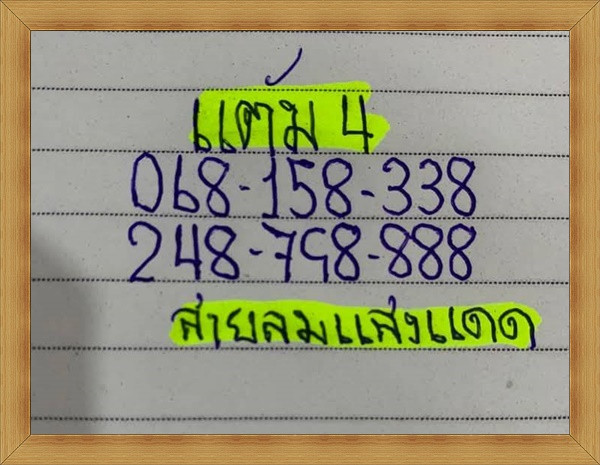 แต้ม 4
068-158-338
248-798-888
สายลมแสงแดด